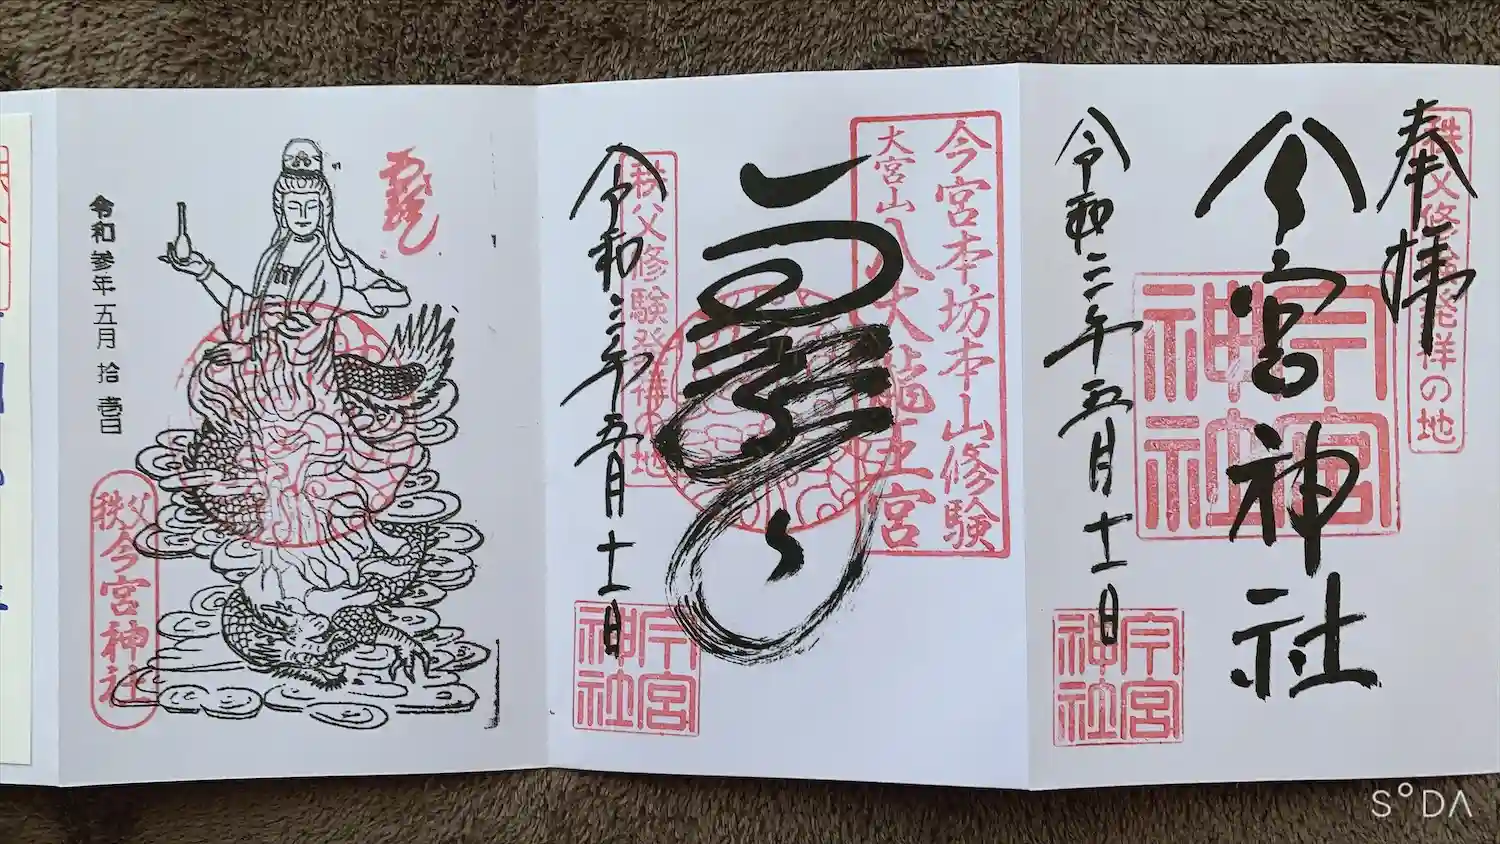 奉拝
秩父修験発祥の地
今宮神社
今宮神社
令和三年五月十一日
今宮神社
今宮本坊本山修験
大宮山八大龍王宮
龍
秩父修験発祥の地
令和三年五月十一日
今宮神社
令和参年五月拾壱日
秩父今宮神社
SODA